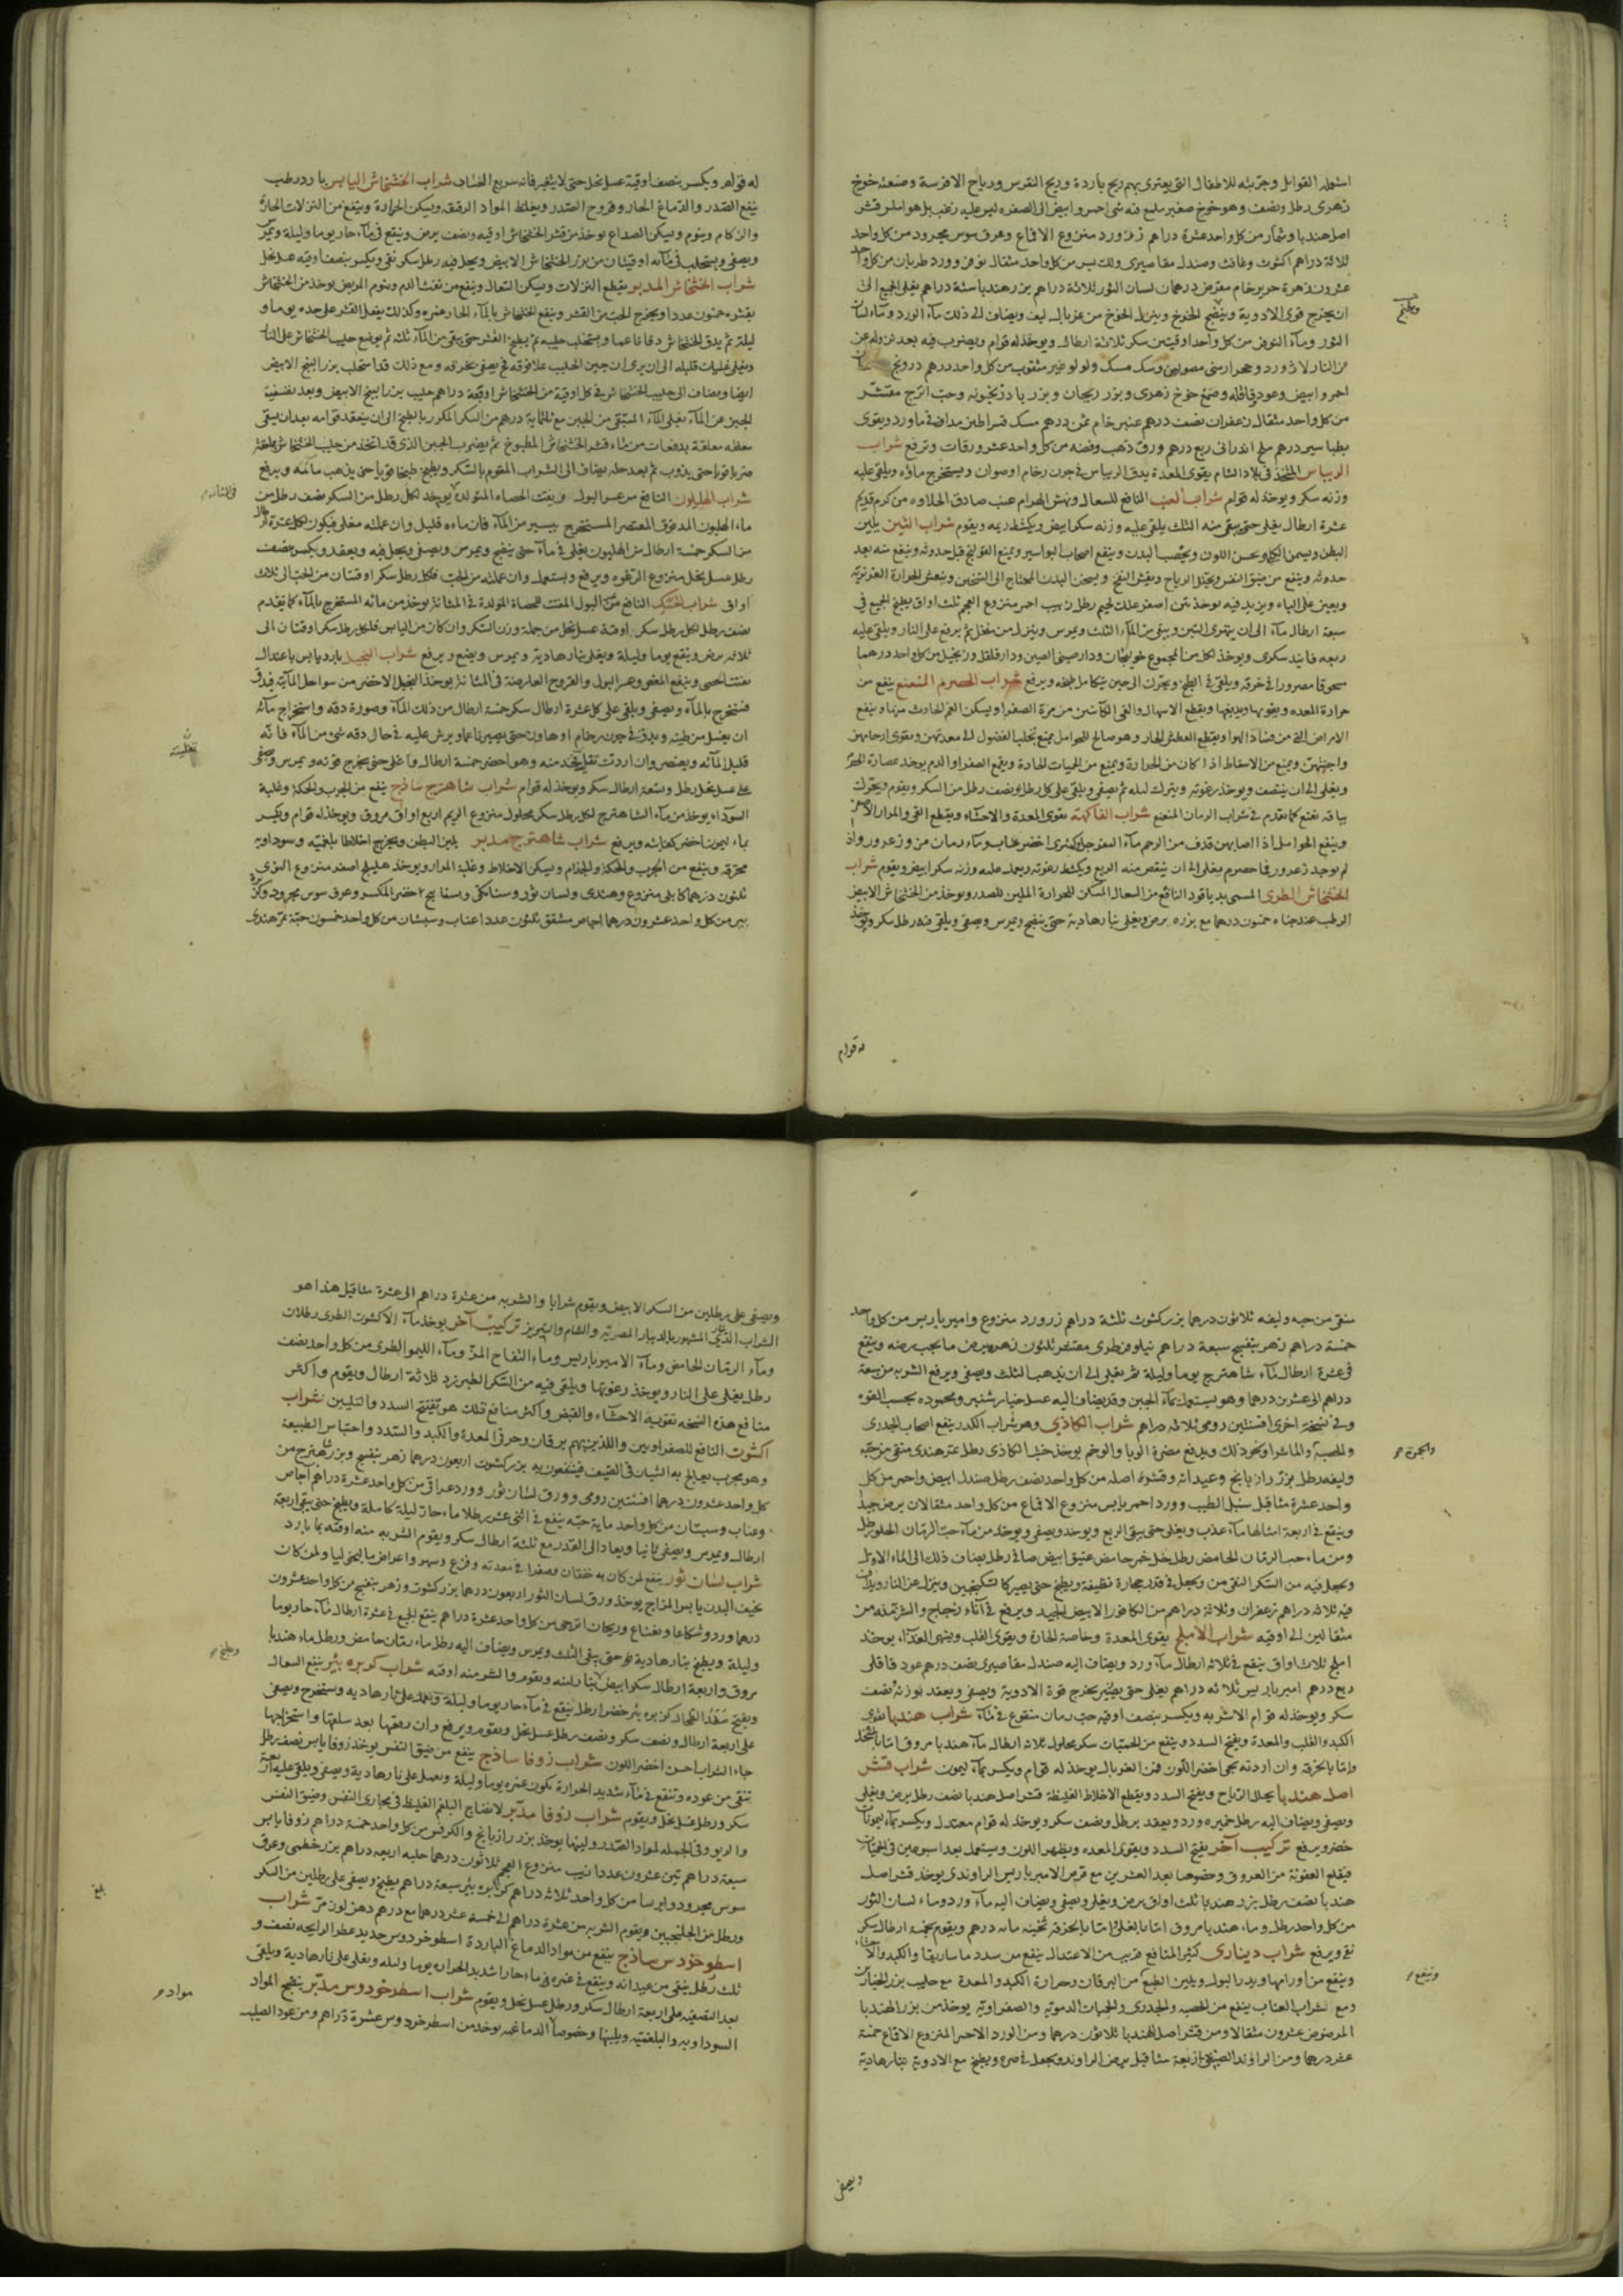 استعمله القوابل وجربته للاطفال التي يعتري بهم ريح باردة وريح النقرس ورياح الافرسة وصنعته خوخ
زهري رطل ونصف وهو خوخ صغير مليح فيه شي احمر وابيض الى الصفره ليس عليه زغب بل هو املس قشر
اصل هندبا وشمار من كل واحد عشرة دراهم زر ورد منزوع الاقماع وعرق سوس مجرود من كل واحد
ثلاثة دراهم اكشوث وغافث وصندل مقاصيري من كل واحد مثقال
عشرون زهرة حرير خام مقرض درهمان لسان الثور ثلاثة دراهم بزر هندبا ستة دراهم يغلى الجميع الى
ان يخرج قوى الادوية وينضج الخوخ وينزل الخوخ من غربال ليف ويضاف الى ذلك ماء الورد وماء لسان
الثور وماء النوفر من كل واحد اوقيتين سكر ثلاثة ارطال ويوخذ له قوام ويضرب فيه بعد نزوله عن
النار لازورد وحجر ارمني مصولين وسك مسك ولولو غير مثقوب من كل واحد درهم درونج
احمر وابيض وعود قاقله وصمغ خوخ زهري وبزر ريحان وبزر باذرنجبويه وحب اترج مقشر
من كل واحد مثقال زعفران نصف درهم عنبر خام ثمن درهم مسك قيراطين مدافة في ماورد ويقوى
بطباسير درهم ملح اندراني ربع درهم ورق ذهب وفضه من كل واحد عشر ورقات وترفع شراب
الريباس المتخذ في بلاد الشام يقوى المعدة يدق الريباس في جرن رخام او صوان ويستخرج ماؤه ويلقى عليه
وزنه سكر ويوخذ له قوام شراب العنب النافع للسعال ونهش الهوام عنب صادق الحلاوه من كرم قديم
عشرة ارطال يغلى حتى يبقى منه الثلث يلقى عليه وزنه سكر ابيض ويكشط ريمه ويقوم شراب التين يلين
البطن ويسمن الكلى ويحسن اللون ويخصب البدن وينفع اصحاب البواسير ويمنع القولنج قبل حدوثه وينفع منه بعد
حدوثه وينفع من ضيق النفس ويحلل الرياح ويفش النفخ ويسخن البدن المحتاج الى التسخين وينعش الحرارة الغريزية
ويعين على الباه ويزيد فيه يوخذ تين اصفر علك لحيم رطل زبيب احمر منزوع العجم ثلث اواق يطبخ الجميع في
سبعة ارطال ماء الى ان يتهرى التين ويبقى من الماء الثلث ويمرس وينزل من منخل ثم يرفع على النار ويلقى عليه
ربعه فانيد سكرى ويوخذ لكل من المجموع خولنجان ودارصيني الصين ودارفلفل وزنجبيل من كل واحد درهما
مسحوقا مصرورا في خرقه ويلقى في الطبخ ويحرك الى حين يتكامل طبخه ويرفع شراب الحصرم المنعنع ينفع من
حرارة المعده ويقويها ويدبغها ويقطع الاسهال والقي الكائنين من مرة الصفرا ويسكن الغم الحادث منها وينفع
الامراض التي من فساد الهوا ويقطع العطش الحار وهو صالح للحوامل يمنع تحلب الفضول الى معدتهن ويقوى ارحامهن
واجنتهن ويمنع من الاسقاط اذا كان من الحرارة ويمنع من الحميات الحادة ويقمع الصفرا والدم يوخذ عصارة الحصرم
ويغلى الى ان ينتصف ويوخذ رغوته ويترك ليله ثم يصفى ويلقى على كل رطل ونصف رطل من السكر ويقوم ويحرك
بباقة نعنع كما تقدم في شراب الرمان المنعنع شراب الفاكهة يقوى المعدة والاحشاء ويقطع القي والمرار الاصفر
وينفع الحوامل اذا اصابهن قذف من الرحم ماء السفرجل وكمثرى اخضر وعناب وماء رمان مز وزعرور واذ
لم يوجد زعرور فماحصرم يغلى الى ان ينقص منه الربع ويكشط رغوته ويعمل عليه وزنه سكر ابيض ويقوم شراب
الخشخاش الطرى المسمى بدياقود النافع من السعال المسكن للحرارة الملين للصدر ويوخذ من الخشخاش الابيض
الرطب عند جناه خمسون درهما مع بزره يرض ويغلى بنار هادية حتى ينضج ويمرس ويصفى ويلقى فيه رطل سكر ويوخذ
ويطبخ
له قوام
له قوام ويكسر بنصف اوقية عسل نحل حتى لا يتغير فانه سريع الفساد شراب الخشخاش اليابس بارد رطب
ينفع الصدر والدماغ الحار وقروح الصدر ويغلظ المواد الرقيقة ويسكن الحرارة وينفع من النزلات الحارة
والزكام وينوم ويسكن الصداع يوخذ من قشر الخشخاش اوقيه ونصف يرض وينقع في ماء حار يوما وليلة ويمرس
ويصفى ويستحلب في مائه اوقيتان من بزر الخشخاش الابيض ويحل فيه رطل سكر نقى ويكسر بنصف اوقيه عسل نحل
شراب الخشخاش المدبر يقطع النزلات ويسكن السعال وينفع من نفث الدم وينوم المريض يوخذ من الخشخاش
بقشره خمسون عددا ويخرج الحب من القشر وينقع الخشخاش بالماء الحار غمره وكذلك يفعل القشر على حده يوما و
ليلة ثم يدق الخشخاش دقا ناعما ويستحلب حليبه ثم يطبخ القشر حتى يبقى من الماء ثلثه ثم يوضع حليب الخشخاش على النار
ويغلى غليات قليله الى ان يرى ان جبن الحليب علا فوقه فيصفى بخرقه ومع ذلك قد استحلب بزر البنج الابيض
ايضا ويضاف الى حليب الخشخاش في كل اوقية من الخشخاش اوقية دراهم حليب بزر البنج الابيض وبعد تصفية
الجبن عن الماء يغلى الماء المتبقى من الجبن مع ثلثماية درهم من السكر المكرر بالطبخ الى ان ينعقد قوامه بعد ان يسقى
ضربا قويا حتى يذوب ثم بعد حله يضاف الى الشراب المقوم بالسكر ويطبخ طبخا قويا حتى يذهب مائه ويرفع
شراب الهليون النافع من عسر البول ويفتت الحصاه المتولده يوخذ لكل رطل من السكر نصف رطل من
ماء الهليون المدقوق المعتصر المستخرج بيسير من الماء فان ماءه قليل وان عملته مغلى فيكون لكل عشرة ارطال
من السكر خمسة ارطال من الهليون يغلى في ماء حتى ينضج ويمرس ويصفى ويحل فيه ويعقد ويكسر بنصف
رطل عسل نحل منزوع الرغوه ويرفع ويستعمل وان عملته من الحب فلكل رطل سكر اوقيتان من الحب الى ثلاث
اواق شراب الحسك النافع من البول المفتت للحصاة المتولدة في المثانة يوخذ من مائه المستخرج بالماء كما تقدم
نصف رطل لكل رطل سكر اوقية عسل نحل من جملة وزن السكر وان كان من اليابس فلكل رطل سكر اوقيتان الى
ثلاثه يرض وينقع يوما وليلة ويغلى بنار هادية ويمرس ويضع ويرفع شراب النجيل بارد يابس باعتدال
يفتت الحصى وينفع المغص وعسر البول والقروح العارضة في المثانة يوخذ النجيل الاخضر من سواحل المائية فيدق
فيستخرج بالماء ويصفى ويلقى على كل عشرة ارطال سكر خمسة ارطال من ذلك الماء وصورة دقه واستخراج مائه
ان يغسل من طينه ويدق في جرن رخام او هاون حتى يصير ناعما ويرش عليه في حال دقه شى من الماء فانه
قليل المائه ويعتصر وان اردت تغليته فخذ منه وهو اخضر خمسة ارطال واغلى حتى يخرج قوته ويمرس ويصفى
على عسل نحل رطل وتسعة ارطال سكر ويوخذ له قوام شراب شاهترج ساذج ينفع من الجرب والحكة وغلبة
السوداء يوخذ من ماء الشاهترج لكل رطل سكر محلول منزوع الريم اربع اواق مروق ويوخذ له قوام ويكسر
بماء ليمون اخضر كفايته ويرفع شراب شاهترج مدبر يلين البطن ويخرج اخلاطا بلغميه وسوداويه
محترقه وينفع من الجرب والحكة والجذام ويسكن الاخلاط وغلبة المرار ويوخذ هليلج اصفر منزوع النوى
ثلثون درهما كابلى منزوع وهندى ولسان ثور وسنا مكى وبسفايج اخضر المكسر وعرق سوس مجرود وكزبرة
بير من كل واحد عشرون درهما اجاص مشقق ثلثون عددا عناب وسبستان من كل واحد خمسون حبة تمر هندى
في المثانة
تغليته
منقى من حبه وليفه ثلاثون درهما بزر كشوث ثلثة دراهم زر ورد منزوع وامير باريس من كل واحد
خمسة دراهم زهر بنفسج سبعة دراهم نيلوفر طرى مقشر ثلثون زهره يرض ما يجب رضه وينقع
في عشرة ارطال ماء شاهترج يوما وليلة ثم يغلى الى ان يذهب الثلث ويصفى ويرفع الشربه من سبعة
دراهم الى عشرين درهما وهو يستعمل بماء الجبن وقد يضاف اليه عسل خيار شنبر ومحموده بحسب القوه
وفي نسخة اخرى افسنتين رومى ثلاثه دراهم شراب الكاذي وهو شراب الكدر ينفع اصحاب الجدرى
والحصبة والماشرا ونحو ذلك ويدفع مضرة الوبا والوخم يوخذ خشب الكاذى رطل تمر هندى منقى من حبه
وليفه رطل بزر رازيانج وعيدانه وقشوره اصله من كل واحد نصف رطل صندل ابيض واحمر من كل
واحد عشرة مثاقيل سنبل الطيب وورد احمر يابس منزوع الاقماع من كل واحد مثقالان يرض جيدا
وينقع في اربعة امثالها ماء عذب ويغلى حتى يبقى الربع ويوخذ ويصفى ويوخذ من ماء حب الرمان الحلو رطل
ومن ماء حب الرمان الحامض رطل خل خمر حامض عتيق ابيض صافى رطل يضاف ذلك الى الماء الاول
ويجعل فيه من السكر النقى من ويجعل في قدر حجارة نظيفة ويطبخ حتى يصير كالسكنجبين وينزل عن النار ويداف
فيه ثلاثه دراهم زعفران وثلاثة دراهم من الكافور الابيض الجيد ويرفع في آناء زجاج والشربه منه من
مثقالين الى اوقيه شراب الاملج يقوى المعدة وخاصة الحارة ويقوى القلب ويشهى الغذاء يوخذ
املج ثلاث اواق ينقع في ثلاثه ارطال ماء ورد ويضاف اليه صندل مقاصيرى نصف درهم عود قاقلى
ربع درهم امير باريس ثلاثه دراهم يغلى حتى يخرج قوة الادوية ويصفى ويعقد بوزنه نصف
سكر ويوخذ له قوام الاشربه ويكسر بنصف اوقيه حب رمان منقوع في ماء شراب هندبا يقوى
الكبد والقلب والمعدة ويفتح السدد وينفع من الحميات سكر محلول ثلاثه ارطال ماء هندبا مروق اما بالشحل
واما بالخرقه وان اردته يجى اخضر اللون فمن الغربال يوخذ له قوام ويكسر بماء ليمون شراب قشر
اصل هندبا يحلل الرياح ويفتح السدد ويقطع الاخلاط الغليظه قشر اصل هندبا نصف رطل يرض ويغلى
ويصفى ويضاف اليه رطل خميره ورد ويعقد برطل ونصف سكر ويوخذ له قوام معتدل ويكسر بماء ليمونات
خضر ويرفع تركيب آخر يفتح السدد ويقوى المعده ويظهر اللون ويستعمل بعد اسبوعين في الحميات
فيقلع العفونة من العروق وخصوصا بعد العشرين مع قرص الامير باريس الراوندى يوخذ قشر اصل
هندبا نصف رطل بزر هندبا ثلث اواق يرض ويغلى ويصفى ويضاف اليه ماء ورد وماء لسان الثور
من كل واحد رطل وماء هندبا مروق اما بالغلى واما بالخرقه ثخينه مايه درهم ويقوم بخمسة ارطال سكر
نقى ويرفع شراب دينارى كثير المنافع قريب من الاعتدال ينفع من سدد ماساريقا والكبد والاحشاء
وينفع من اورامها ويدر البول ويلين الطبع من اليرقان وحرارة الكبد والمعدة مع حليب بزر الخيار
ومع شراب العناب ينفع من الحصبه والجدرى والحميات الدمويه والصفراويه يوخذ من بزر الهندبا
المرضوض عشرون مثقالا ومن قشر اصل الهندبا ثلاثون درهما ومن الورد الاحمر المنزوع الاقماع خمسة
عشر درهما ومن الراوند الصينى اربعة مثاقيل يرض الراوند ويجعل في صره ويطبخ مع الادوية بنار هادية
وينفع
ويصفى
ويصفى على رطلين من السكر الابيض ويقوم شرابا والشربه من عشرة دراهم الى عشرة مثاقيل هذا هو
الشراب الذى المشهور بالديار المصريه والشام والتبريز تركيب آخر يوخذ ماء الاكشوث الطرى رطلان
وماء الرمان الحامض وماء الامير باريس وماء التفاح المز وماء الليمو الطرى من كل واحد نصف
رطل يغلى على النار ويوخذ رغوتها ويلقى فيه من السكر الطبرزد ثلاثة ارطال ويقوم واكثر
منافع هذه النسخه تقوية الاحشاء والقبض واكثر منافع تلك هو تفتيح السدد والتليين شراب
اكشوث النافع للصفراويين واللذين بهم يرقان وحرق المعدة والكبد والسدد واحتباس الطبيعة
وهو مجرب يعالج به الشبان في الصيف فينتفعون به بزر كشوث اربعون درهما زهر بنفسج وبزر شاهترج من
كل واحد عشرون درهما افسنتين رومى وورق لسان ثور وورد عراقى من كل واحد عشرة دراهم اجاص
وعناب وسبستان من كل واحد مايه حبه ينقع في اثنى عشر رطلا ماء حار ليلة كاملة ويطبخ حتى يبقى اربعة
ارطال ويمرس ويصفى ثانيا ويعاد الى القدر مع ثلثة ارطال سكر ويقوم الشربه منه اوقيه بماء بارد
شراب لسان ثور ينفع لمن كان به خفقان وصفرا في معدته وفزع وسهر واعراض ماليخوليا ولمن كان
نحيف البدن يابس المزاج يوخذ ورق لسان الثور اربعون درهما بزر كشوث وزهر بنفسج من كل واحد عشرون
درهما ورد وشكاعا ونعناع وريحان اترجى من كل واحد عشرة دراهم ينقع الجميع في عشرة ارطال ماء حار يوما
وليلة ويطبخ بنار هادية حتى يبقى الثلث ويمرس ويضاف اليه رطل ماء رمان حامض ورطل ماء هندبا
مروق واربعة ارطال سكر ابيض بنار لينه ويقوم والشربه منه اوقيه شراب كزبره بئر ينفع السعال
ويفتح سدد الطحال كزبره بئر خضر ارطل ينقع في ماء حار يوما وليلة ويعمد على نار هاديه ويستخرج ويصفى
على اربعة ارطال ونصف سكر ونصف رطل عسل نحل ويقوم ويرفع وان دققتها بعد سلقها واستخراجها
جاء الشراب احسن اخضر اللون شراب زوفا ساذج ينفع من ضيق النفس يوخذ زوفا يابس نصف رطل
تنقى من عوده وتنقع في ماء شديد الحرارة يكون غمره يوما وليلة ويعمل على نار هادية ويصفى ويلقى عليه اربعة
سكر ورطل عسل نحل ويقوم شراب زوفا مدبر لانضاج البلغم الغليظ في مجارى النفس وضيق النفس
والربو وفي الجمله لمواد الصدر ولينها يوخذ بزر رازيانج والكرفس من كل واحد خمسة دراهم زوفا يابس
سبعة دراهم تين عشرون عددا زبيب منزوع العجم ثلاثون درهما حلبه اربعه دراهم بزر خطمى وعرق
سوس مجرود وايرسا من كل واحد ثلاثه دراهم كزبره بئر سبعة دراهم يطبخ ويصفى على رطلين من السكر
ورطل من الجلنجبين ويقوم الشربه من عشرة دراهم الى خمسة عشر درهما مع درهم دهن لوز مر شراب
اسطوخدوس ساذج ينفع من مواد الدماغ الباردة اسطوخدوس جديد عطر الرايحه نصف و
ثلث رطل ينقى من عيدانه وينقع في غمره في ماء حار شديد الحراره يوما وليله ويغلى على نار هادية ويلقى
بعد التصفيه على اربعة ارطال سكر ورطل عسل نحل ويقوم شراب اسطوخدوس مدبر ينضج المواد
السوداويه والبلغميه ويلينها وخصوصا الدماغيه يوخذ من اسطوخدوس عشرة دراهم ومن عود الصليب
ويطبخ
بلغ
مواد